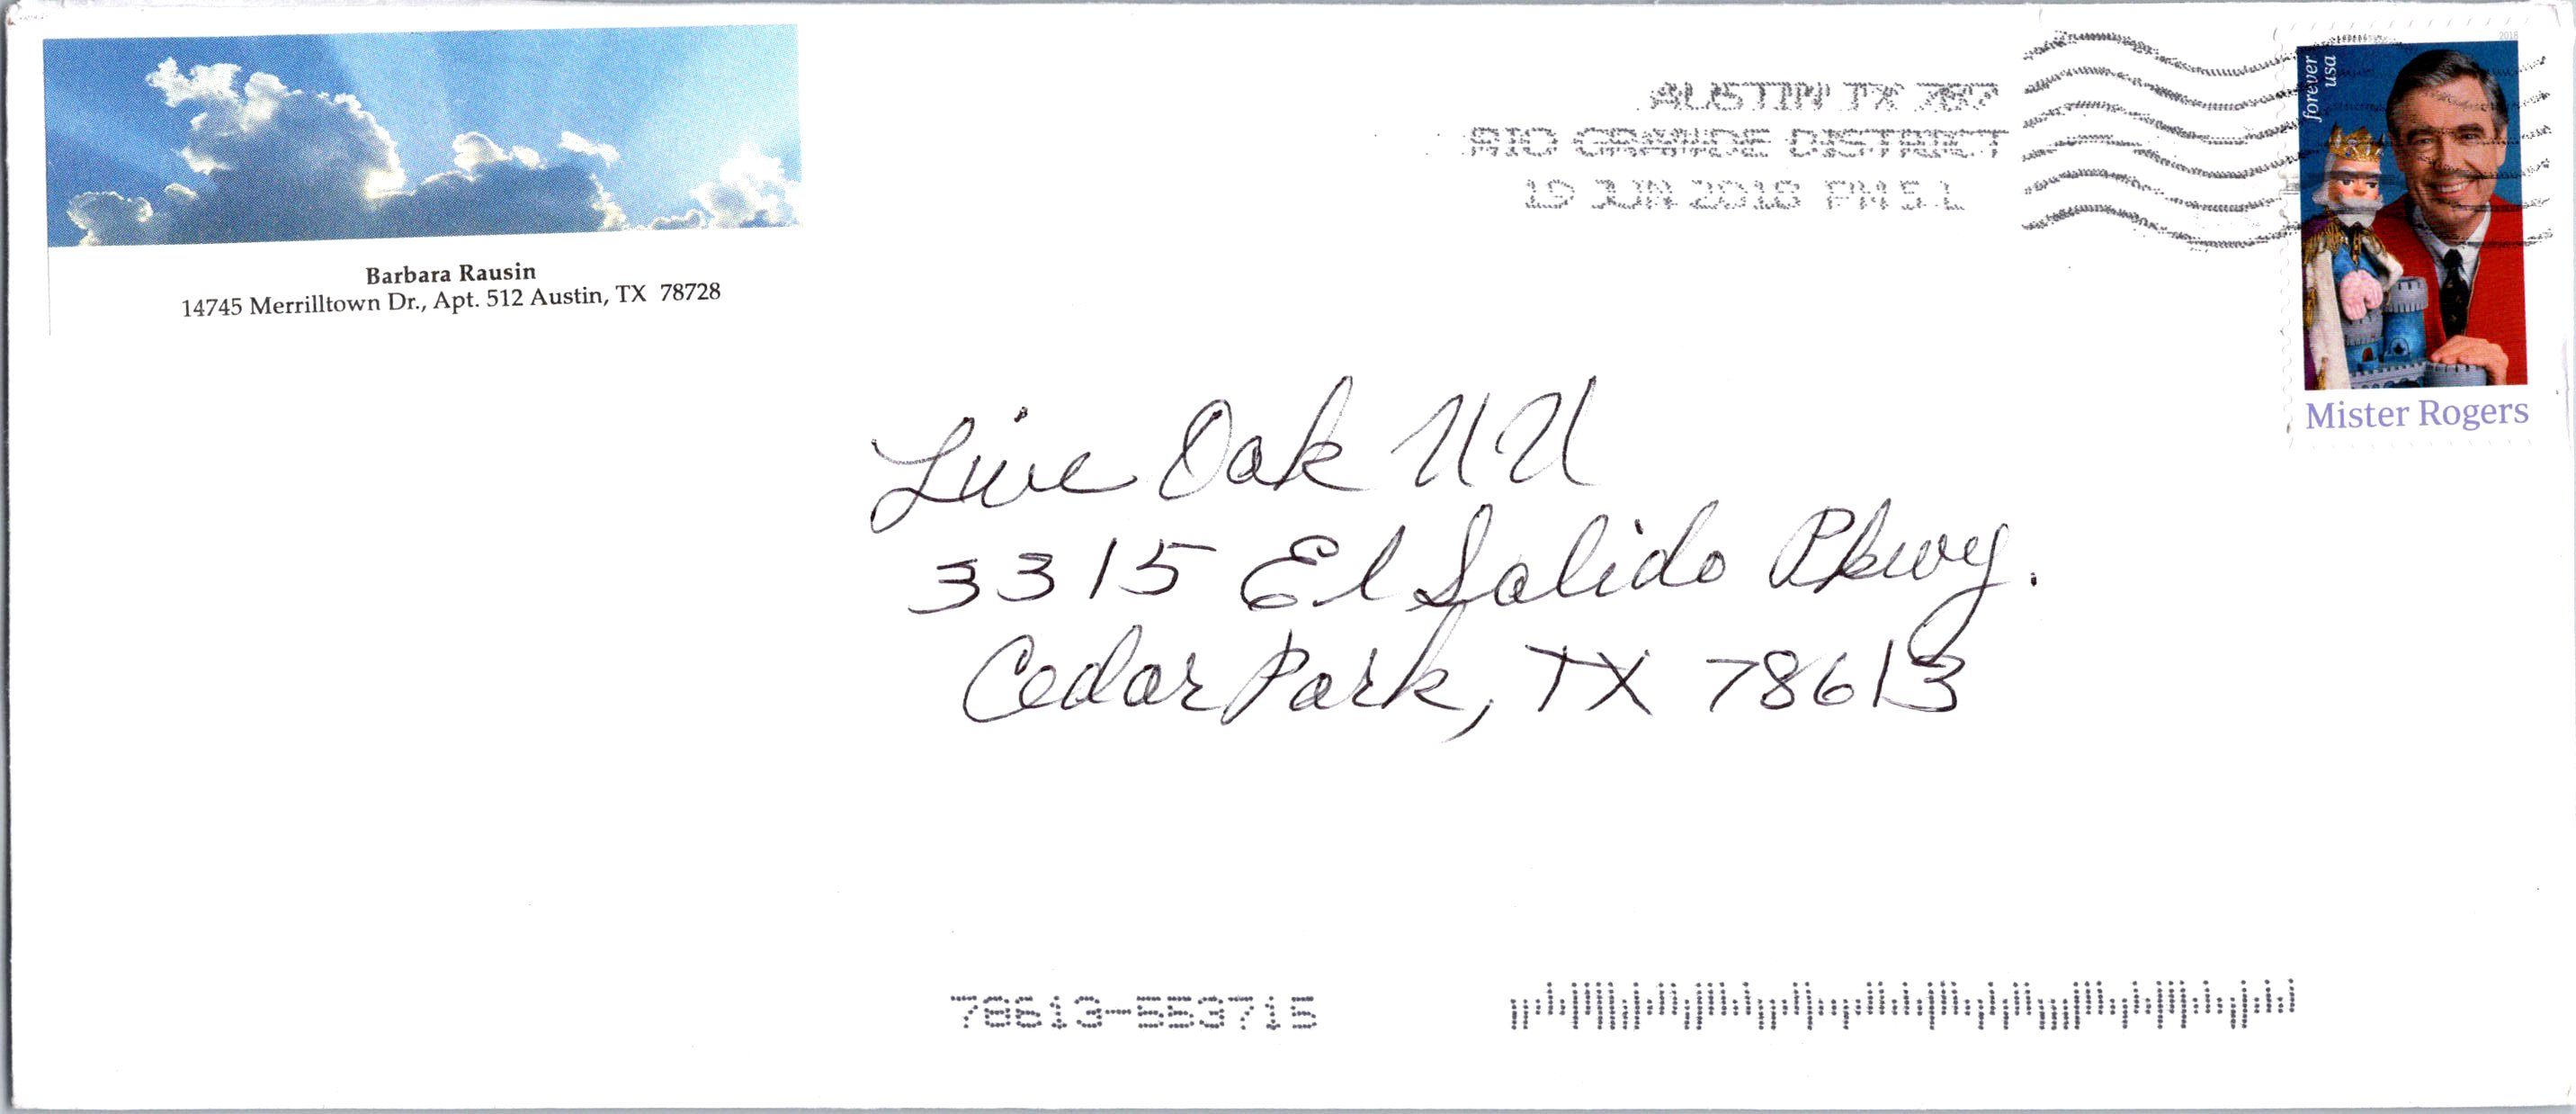 Barbara Rausin
14745 Merrilltown Dr., Apt. 512 Austin, TX 78728
AUSTIN TX 787
RIO GRANDE DISTRICT
19 JUN 2018 PM 5 L
forever
usa
2018
Mister Rogers
Live Oak UU
3315 El Salido Pkwy.
Cedar Park, TX 78613
78613-553715